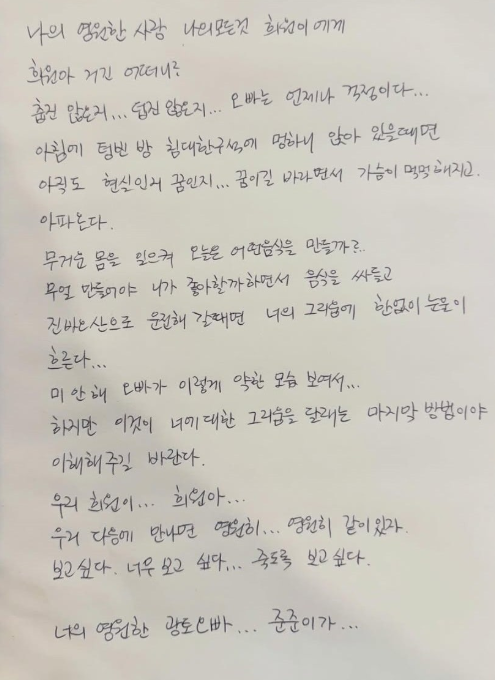 나의 영원한 사랑 나의모든것 희원이에게
희원아 거긴 어떠니?
춥진 않은지... 덥진 않은지... 오빠는 언제나 걱정이다...
아침에 텅빈 방 침대한구석에 멍하니 앉아 있을때면
아직도 현실인지 꿈인지... 꿈이길 바라면서 가슴이 먹먹해지고
아파온다.
무거운 몸을 일으켜 오늘은 어떤음식을 만들까?..
무얼 만들어야 니가 좋아할까하면서 음식을 싸들고
진바으산으로 운전해 갈때면 너의 그리움에 한없이 눈물이
흐른다...
미안해 오빠가 이렇게 약한 모습 보여서...
하지만 이것이 너에대한 그리움을 달래는 마지막 방법이야
이해해주길 바란다.
우리 희원이... 희원아...
우리 다음에 만나면 영원히... 영원히 같이있자.
보고싶다. 너무 보고 싶다... 죽도록 보고싶다.
너의 영원한 광토오빠... 준준이가...